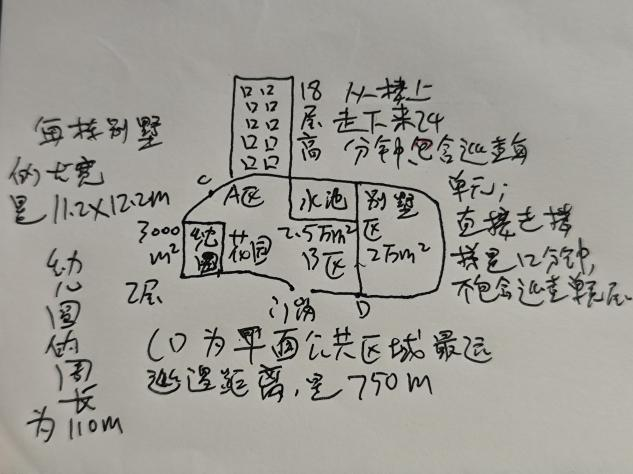 每栋别墅
的长宽
是11.2X12.2m
18 从楼上
层 走下来24
高 分钟包含巡查每
单元;
直接走楼
梯是12分钟,
不包含巡查单元层
C
A区
水池
别墅
区
2万m²
3000
m²
幼
园
花园
2.5万m²
B区
2层
门岗
D
幼儿园的周长
为110m
CD为平面公共区域最远
巡逻距离,是750m